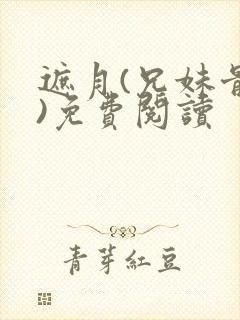 遮月(兄妹骨
)免費閱讀
青芽紅豆